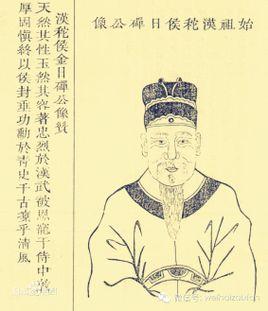 始祖漢秺侯日磾公像
漢秺侯金日磾公像贊
天然其性玉然其容著忠烈於漢武被恩寵于侍中
厚固慎終以侯封垂功勳於青史千古凜乎清風
微信号: